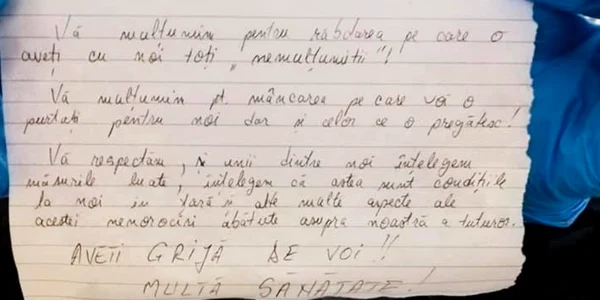 Vă mulțumim pentru răbdarea pe care o
aveți cu noi toți „nemulțumiții"!
Vă mulțumim pt. mâncarea pe care voi o
purtați pentru noi dar și celor ce o pregătesc!
Vă respectăm, și unii dintre noi înțelegem
măsurile luate, înțelegem că astea sunt condițiile
la noi în țară și alte multe aspecte ale
acestei nenorociri abătute asupra noastră a tuturor.
AVEȚI GRIJĂ DE VOI!!
MULTĂ SĂNĂTATE!